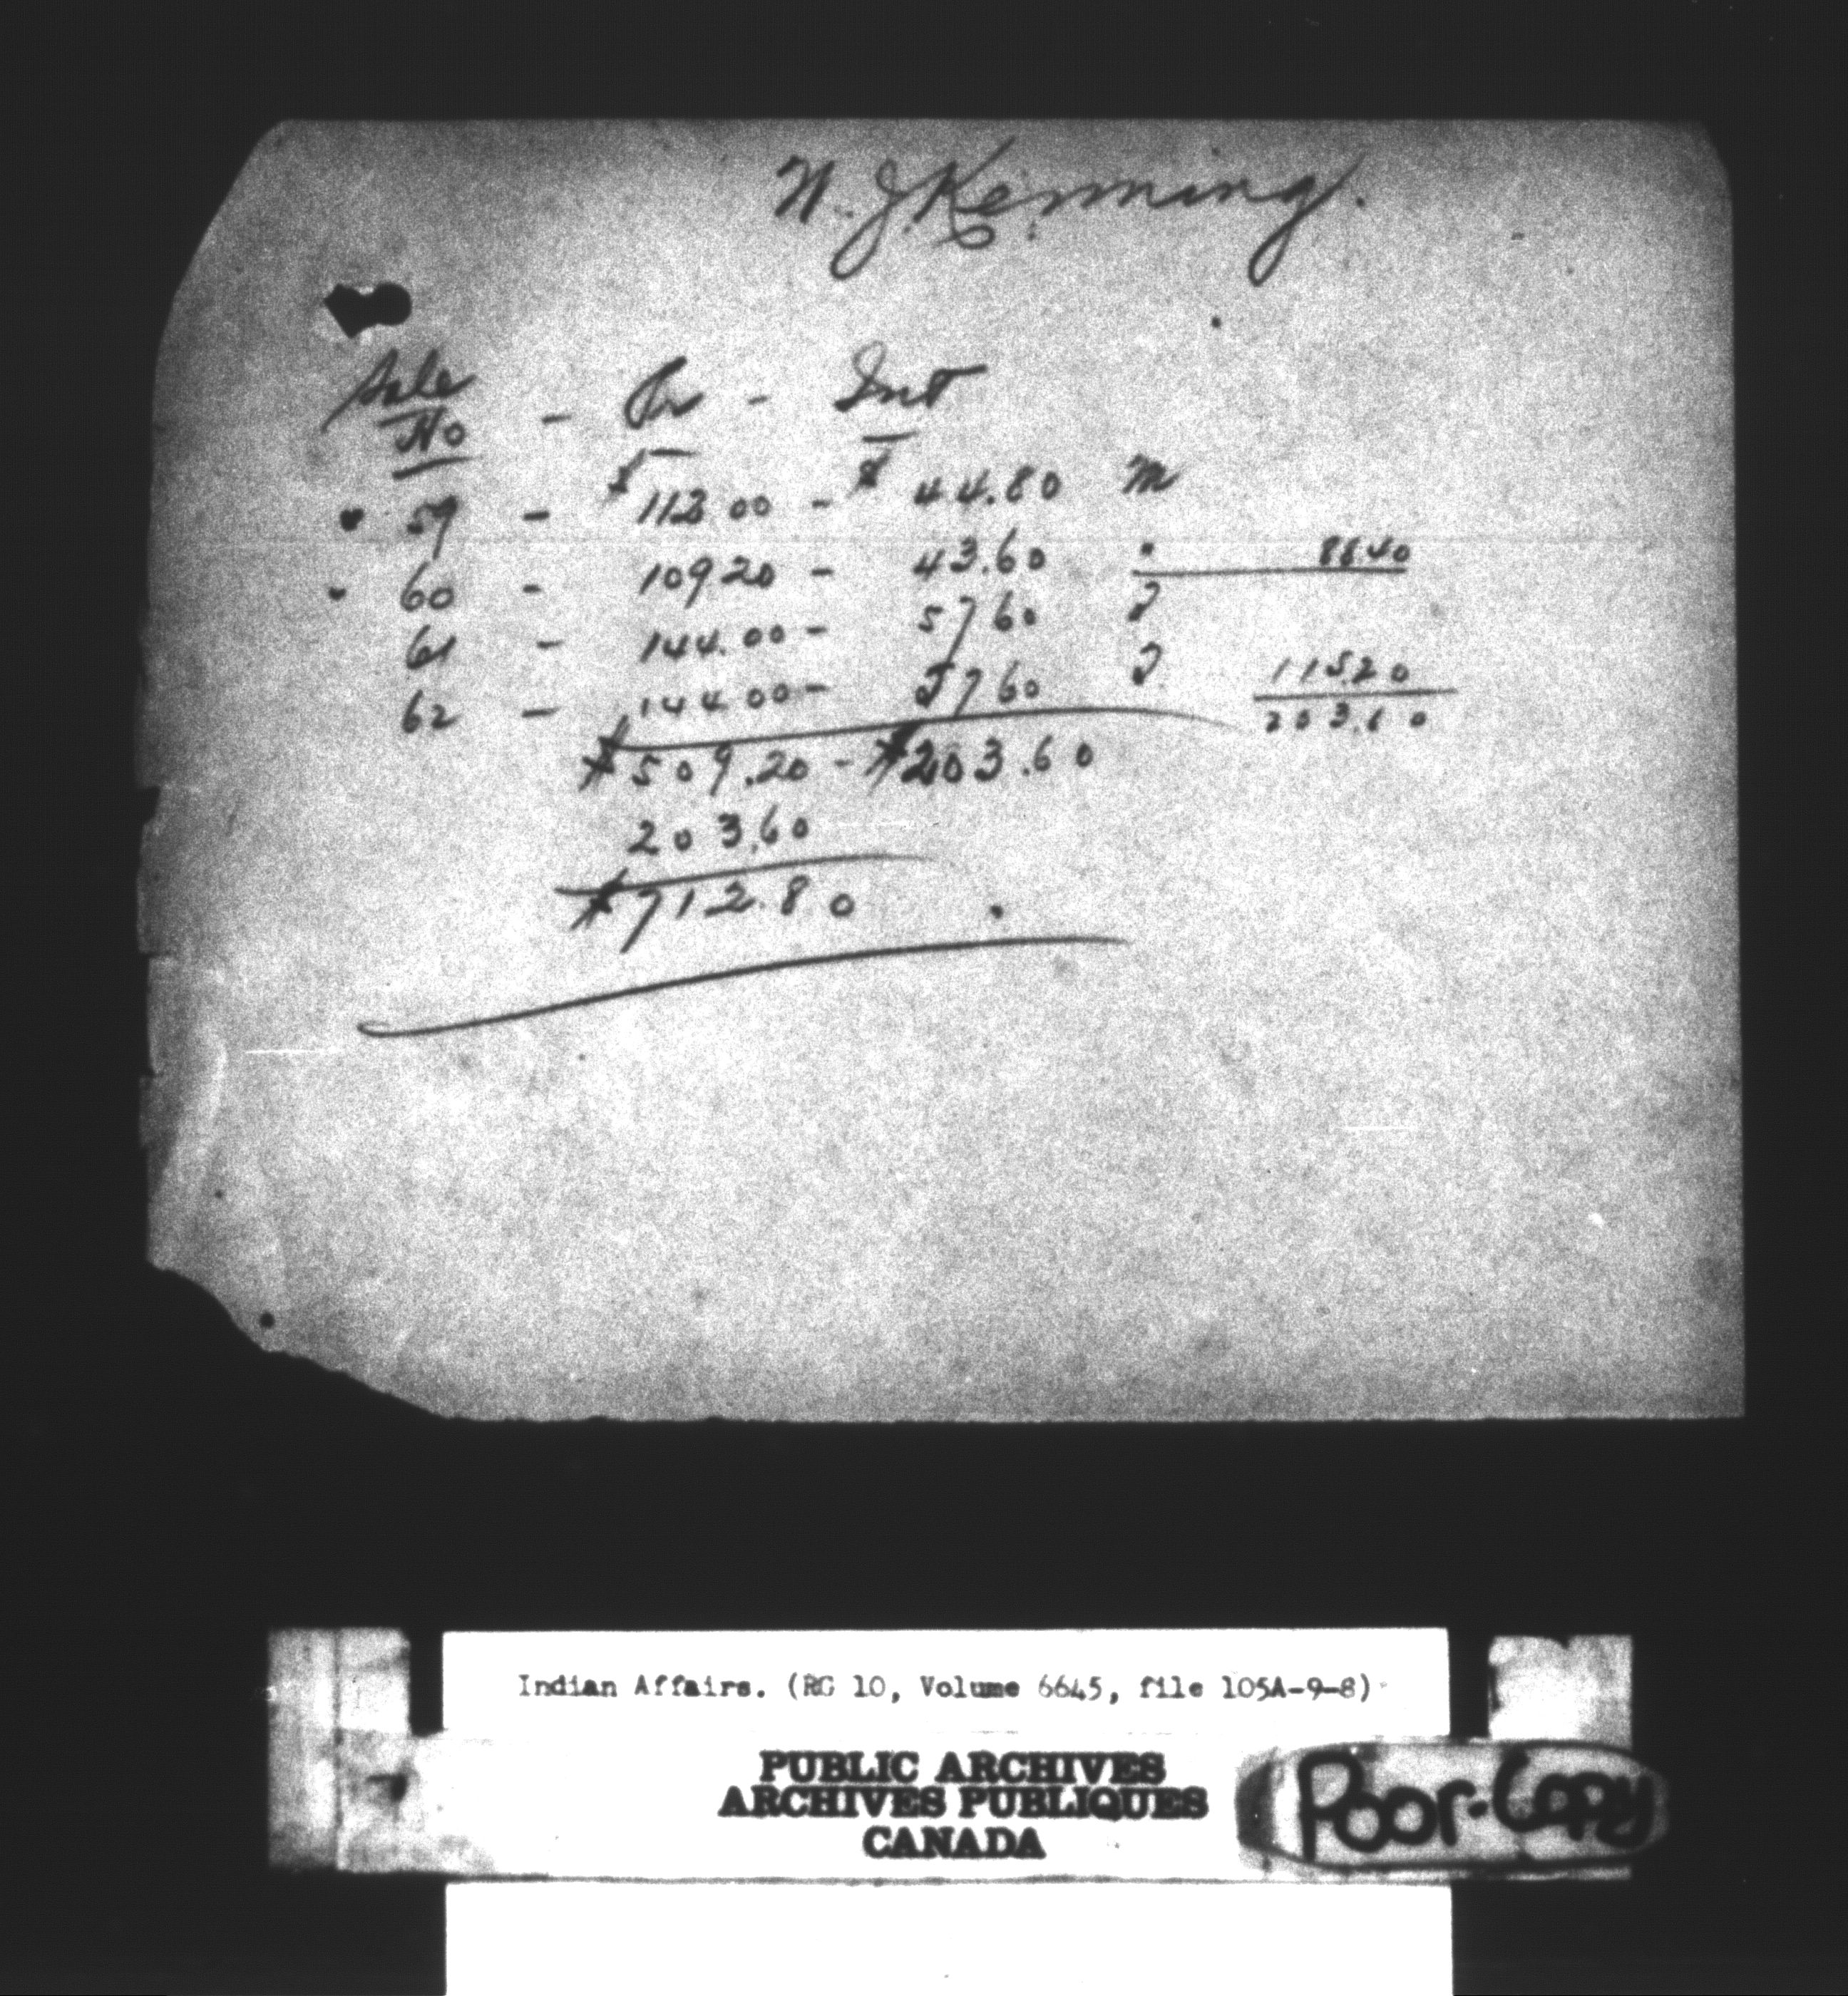 N. J. Kenming.
Sale No - Pr - Int
59 - $112 00 - $44.80 m
60 - 109 20 - 43.60 " 88.40
61 - 144.00 - 57 60 J
62 - 144.00 - 57 60 J 115.20
$509.20 - $203.60 203.60
203.60
$712.80
Indian Affairs. (RG 10, Volume 6645, file 105A-9-8)
PUBLIC ARCHIVES
ARCHIVES PUBLIQUES
CANADA
Poor-Copy